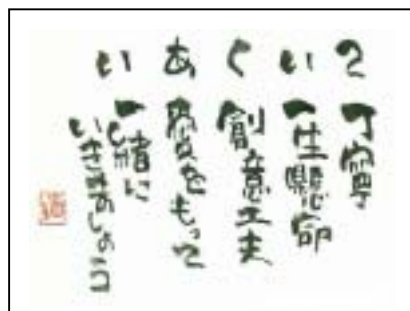 て 丁寧
い 一生懸命
く 創意工夫
あ 愛をもって
い 一緒に
いきましょう